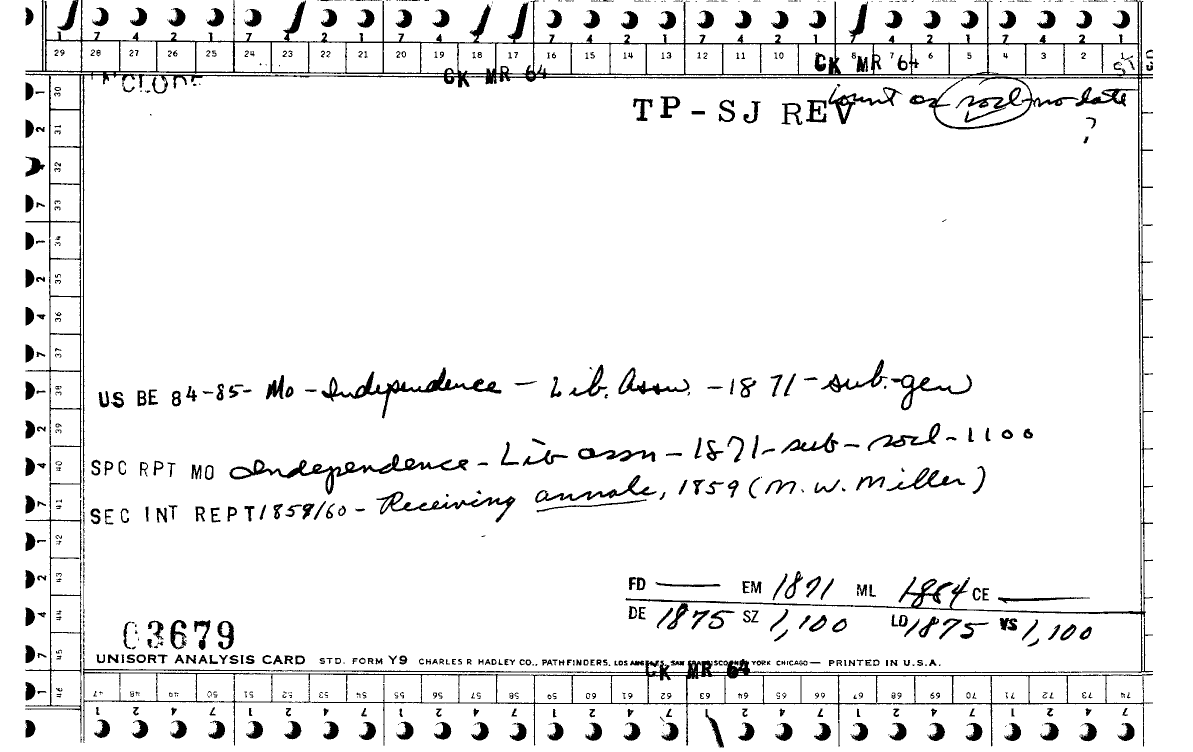 7 4 2 1 7 4 2 1 7 4 2 1 7 4 2 1 7 4 2 1 7 4 2 1 7 4 2 1
29 28 27 26 25 24 23 22 21 20 19 18 17 16 15 14 13 12 11 10 9 8 7 6 5 4 3 2 1
CK MR 64 CK MR 64
TP-SJ REV count as socl-no date
?
30 31 32 33 34 35 36 37 38 39 40 41 42 43 44 45 46
US BE 84-85- Mo - Independence - Lib. Assn. - 1871 - sub.-gen
SPC RPT MO Independence - Lib assn - 1871 - sub - socl - 1100
SEC INT REPT 1859/60 - Receiving annals, 1859 (M. W. Miller)
FD — EM 1871 ML 1884 CE —
DE 1875 SZ 1,100 LD 1875 VS 1,100
03679
UNISORT ANALYSIS CARD STD. FORM Y9 CHARLES R HADLEY CO., PATHFINDERS, LOS ANGELES, SAN FRANCISCO, NEW YORK CHICAGO — PRINTED IN U.S.A.
CK MR 64
47 48 49 50 51 52 53 54 55 56 57 58 59 60 61 62 63 64 65 66 67 68 69 70 71 72 73 74
1 2 4 7 1 2 4 7 1 2 4 7 1 2 4 7 1 2 4 7 1 2 4 7 1 2 4 7